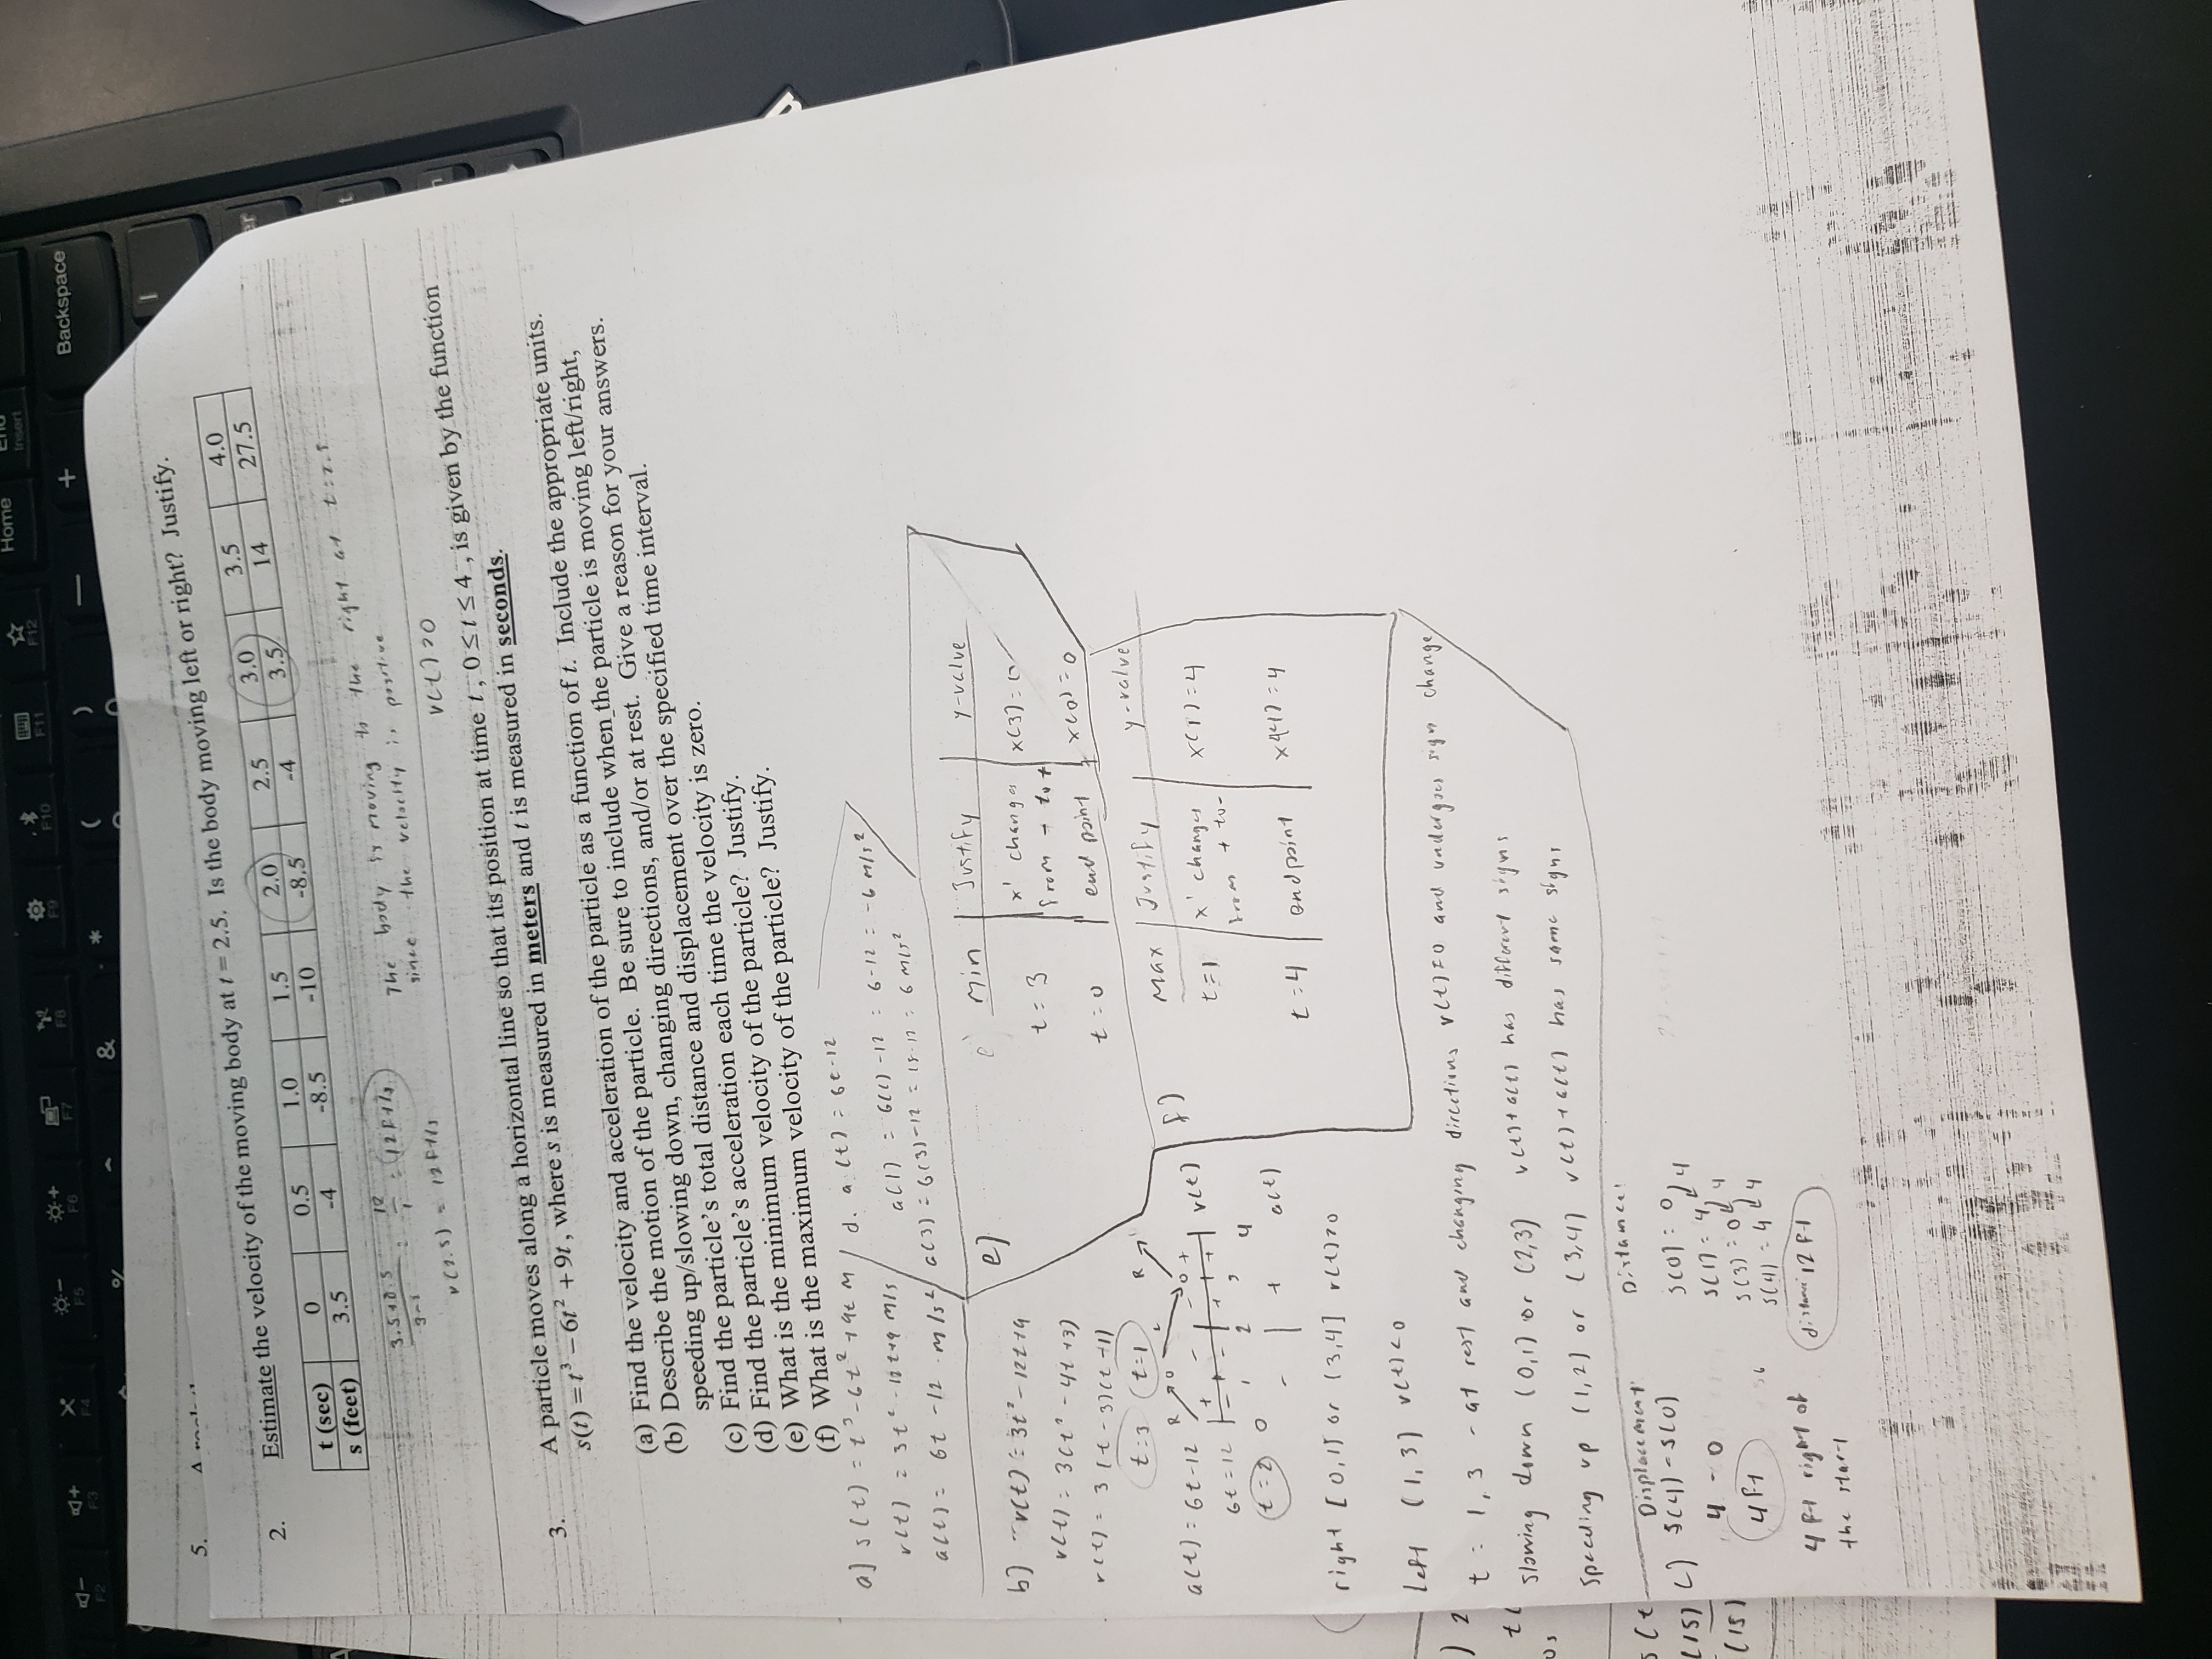 Home
End
Insert
F2
F3
F4
F5
F6
F7
F8
F9
F10
F11
F12
Backspace
% ^ & * ( ) — +
5.
2. Estimate the velocity of the moving body at t = 2.5. Is the body moving left or right? Justify.
t (sec) 0 0.5 1.0 1.5 2.0 2.5 3.0 3.5 4.0
s (feet) 3.5 -4 -8.5 -10 -8.5 -4 3.5 14 27.5
3.5+8.5 / = 12/1 = 12 ft/s
v(2.5) = 12 ft/s
The body is moving to the right at t=2.5
since the velocity is positive
v(t)>0
3. A particle moves along a horizontal line so that its position at time t, 0 ≤ t ≤ 4, is given by the function
s(t) = t³ – 6t² + 9t, where s is measured in meters and t is measured in seconds.
(a) Find the velocity and acceleration of the particle as a function of t. Include the appropriate units.
(b) Describe the motion of the particle. Be sure to include when the particle is moving left/right,
speeding up/slowing down, changing directions, and/or at rest. Give a reason for your answers.
(c) Find the particle's total distance and displacement over the specified time interval.
(d) Find the particle's acceleration each time the velocity is zero.
(e) What is the minimum velocity of the particle? Justify.
(f) What is the maximum velocity of the particle? Justify.
a) s(t) = t³-6t²+9t m
v(t) = 3t²-12t+9 m/s
a(t) = 6t -12 m/s²
d. a(t) = 6t-12
a(1) = 6(1)-12 = 6-12 = -6 m/s²
a(3) = 6(3)-12 = 18-12 = 6 m/s²
b) v(t) = 3t²-12t+9
v(t) = 3(t²-4t+3)
v(t) = 3(t-3)(t-1)
t=3 t=1
a(t) = 6t-12
6t=12
t=2
R 0 L 0 R
+ - - + v(t)
0 1 2 3 4
- + a(t)
e) Min Justify y-value
t = 3 x' changes from - to + x(3)=0
t=0 end point x(0)=0
f) Max Justify y-value
t=1 x' changes from + to - x(1)=4
t=4 endpoint x(4)=4
right [0,1) or (3,4] v(t)>0
left (1,3) v(t)<0
t = 1, 3 - at rest and changing directions v(t)=0 and undergoes sign change
slowing down (0,1) or (2,3) v(t)+a(t) has different signs
speeding up (1,2) or (3,4) v(t)+a(t) has same signs
c) Displacement
s(4)-s(0)
4 - 0
4 ft
4 ft right of
the start
Distance:
s(0) = 0
s(1) = 4 4
s(3) = 0 4
s(4) = 4 4
distance 12 ft
) 2
s(t
(15)
(15)